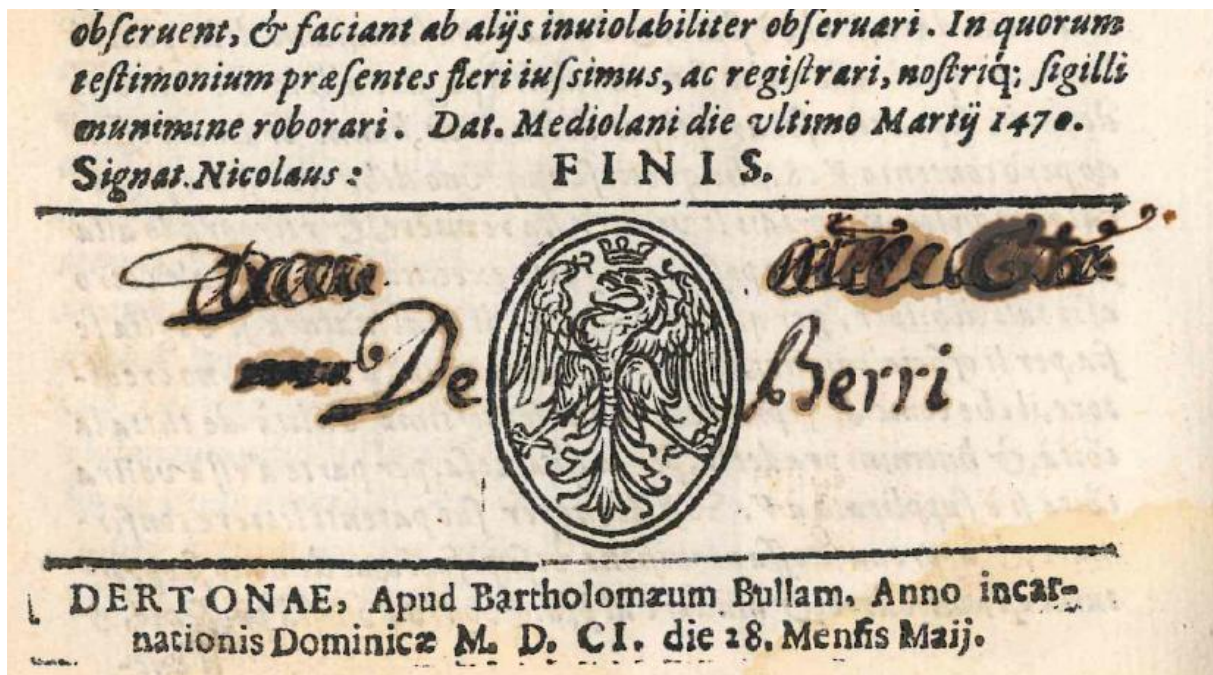 obſeruent, & faciant ab alijs inuiolabiliter obſeruari. In quorum
teſtimonium præſentes fieri iuſsimus, ac regiſtrari, noſtriq; ſigilli
munimine roborari. Dat. Mediolani die vltimo Martij 1470.
Signat. Nicolaus: FINIS.
De Berri
DERTONAE, Apud Bartholomæum Bullam, Anno incar-
nationis Dominicæ M. D. CI. die 28. Menſis Maij.